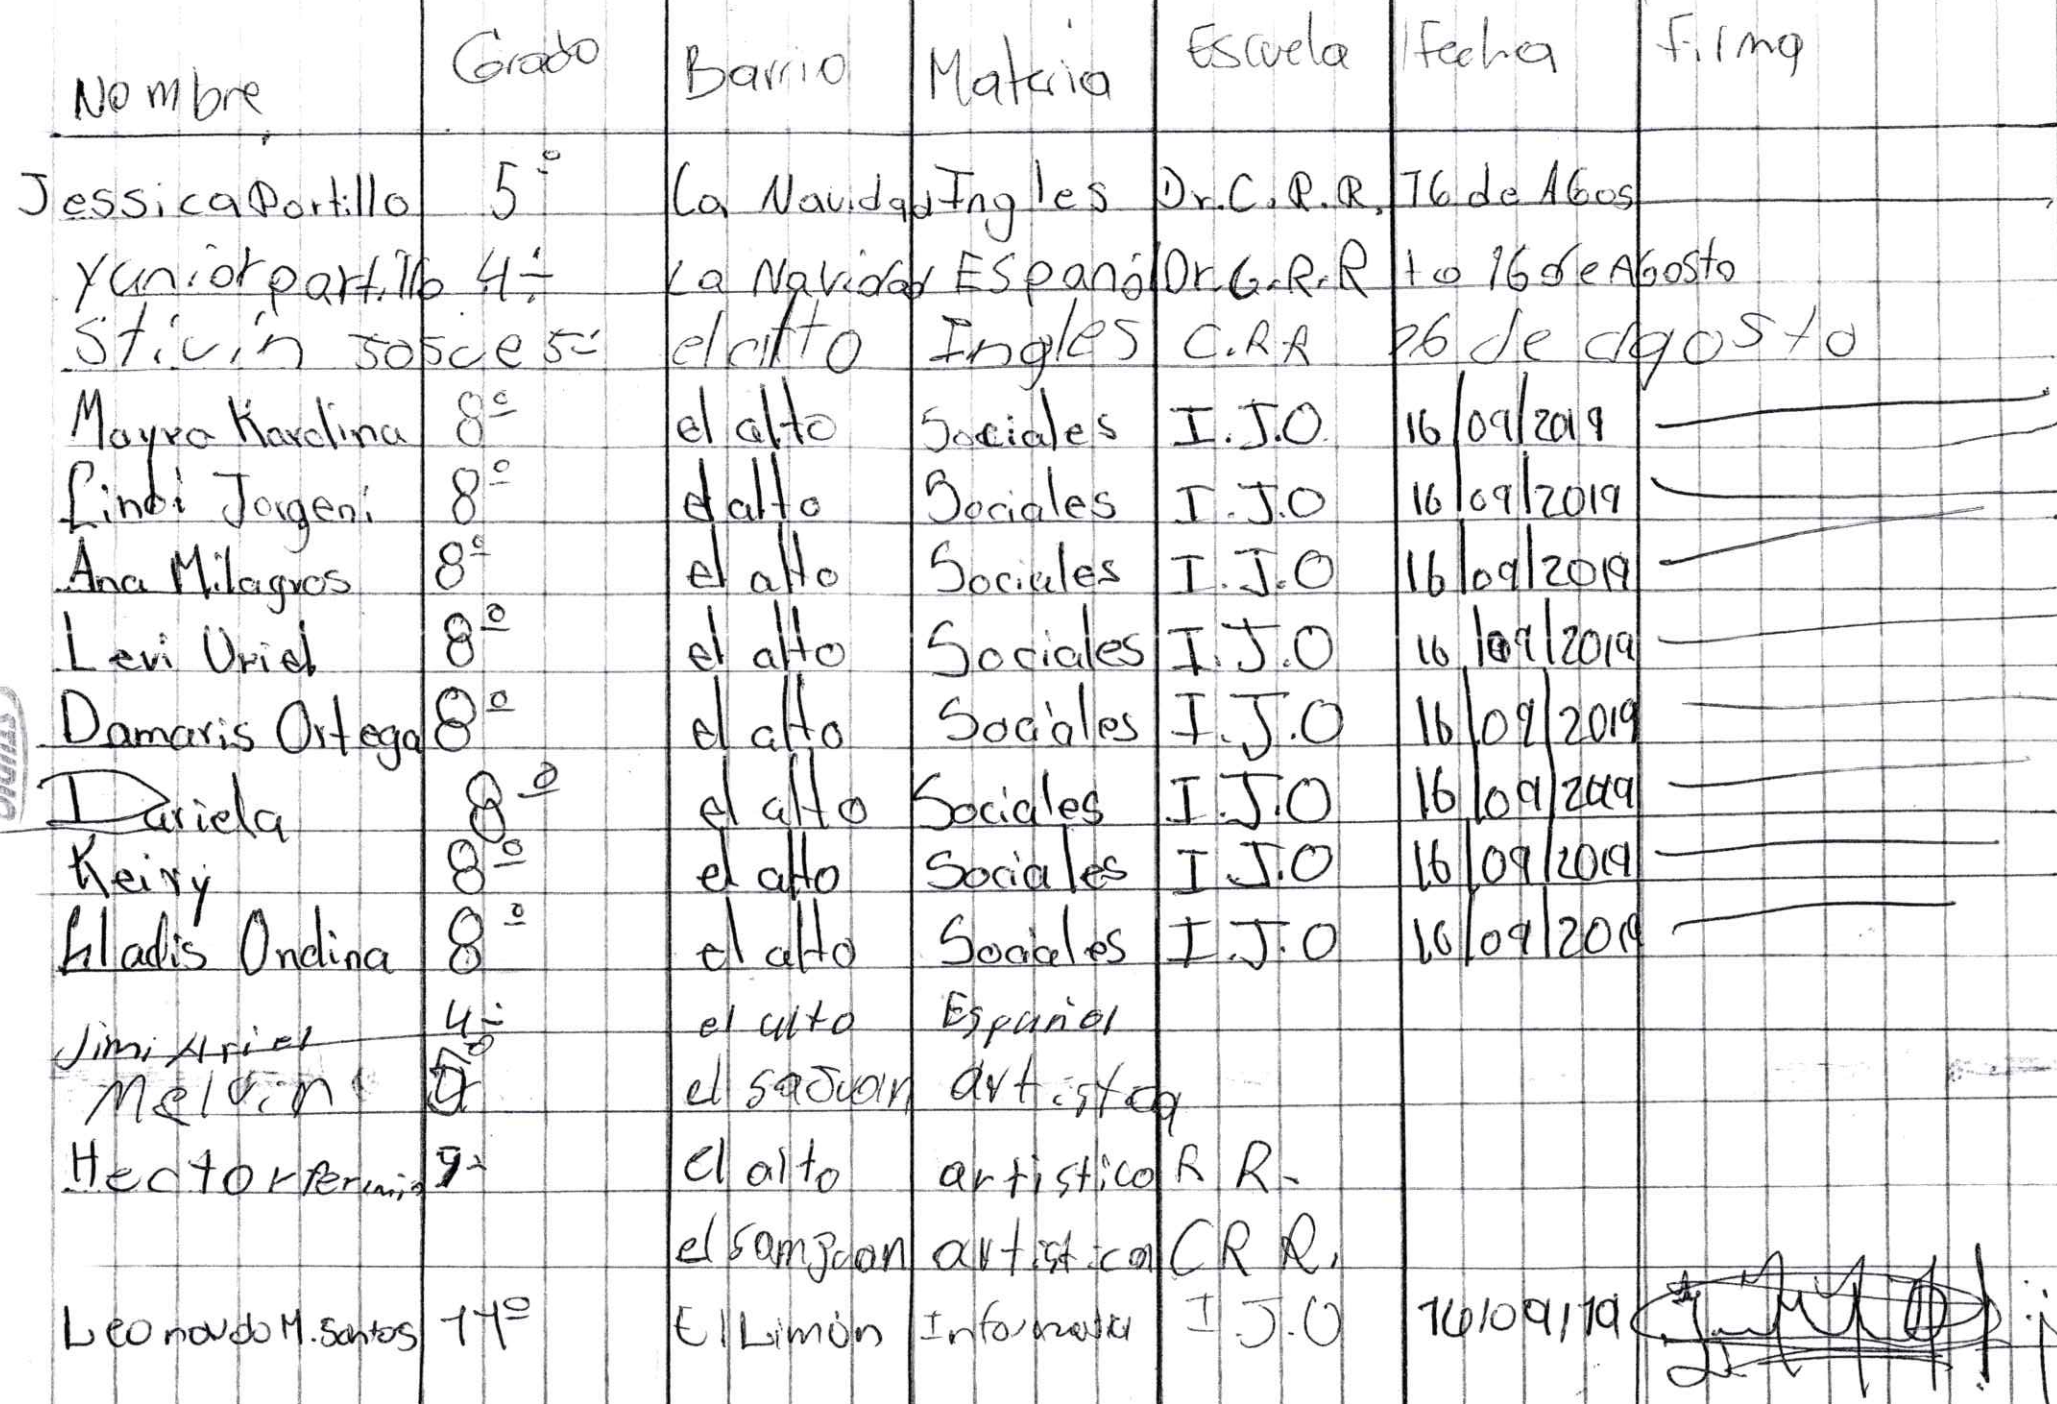 Nombre Grado Barrio Materia Escuela fecha firma
Jessica Portillo 5º La Navidad Ingles Dr.C.R.R. 16 de Agos
yunior partillo 4º La Navidad Español Dr.C.R.R to 16 de Agosto
Stivin 5º el alto Ingles C.R.R 26 de agosto
Mayra Karolina 8º el alto Sociales I.J.O. 16/09/2019
Lindi Jorgeni 8º el alto Sociales I.J.O 16/09/2019
Ana Milagros 8º el alto Sociales I.J.O 16/09/2019
Levi Uriel 8º el alto Sociales I.J.O 16/09/2019
Damaris Ortega 8º el alto Sociales I.J.O 16/09/2019
Dariela 8º el alto Sociales I.J.O 16/09/2019
Keiry 8º el alto Sociales I J.O 16/09/2019
Gladis Ondina 8º el alto Sociales I.J.O 16/09/2019
Jimi Ariel 4º el alto Español
Melvin el saJuan artistca
Hector 9º el alto artistico R R.
el samJuan artistica C R R.
Leonardo M. Santos 11º El Limón I J.O 16/09/19